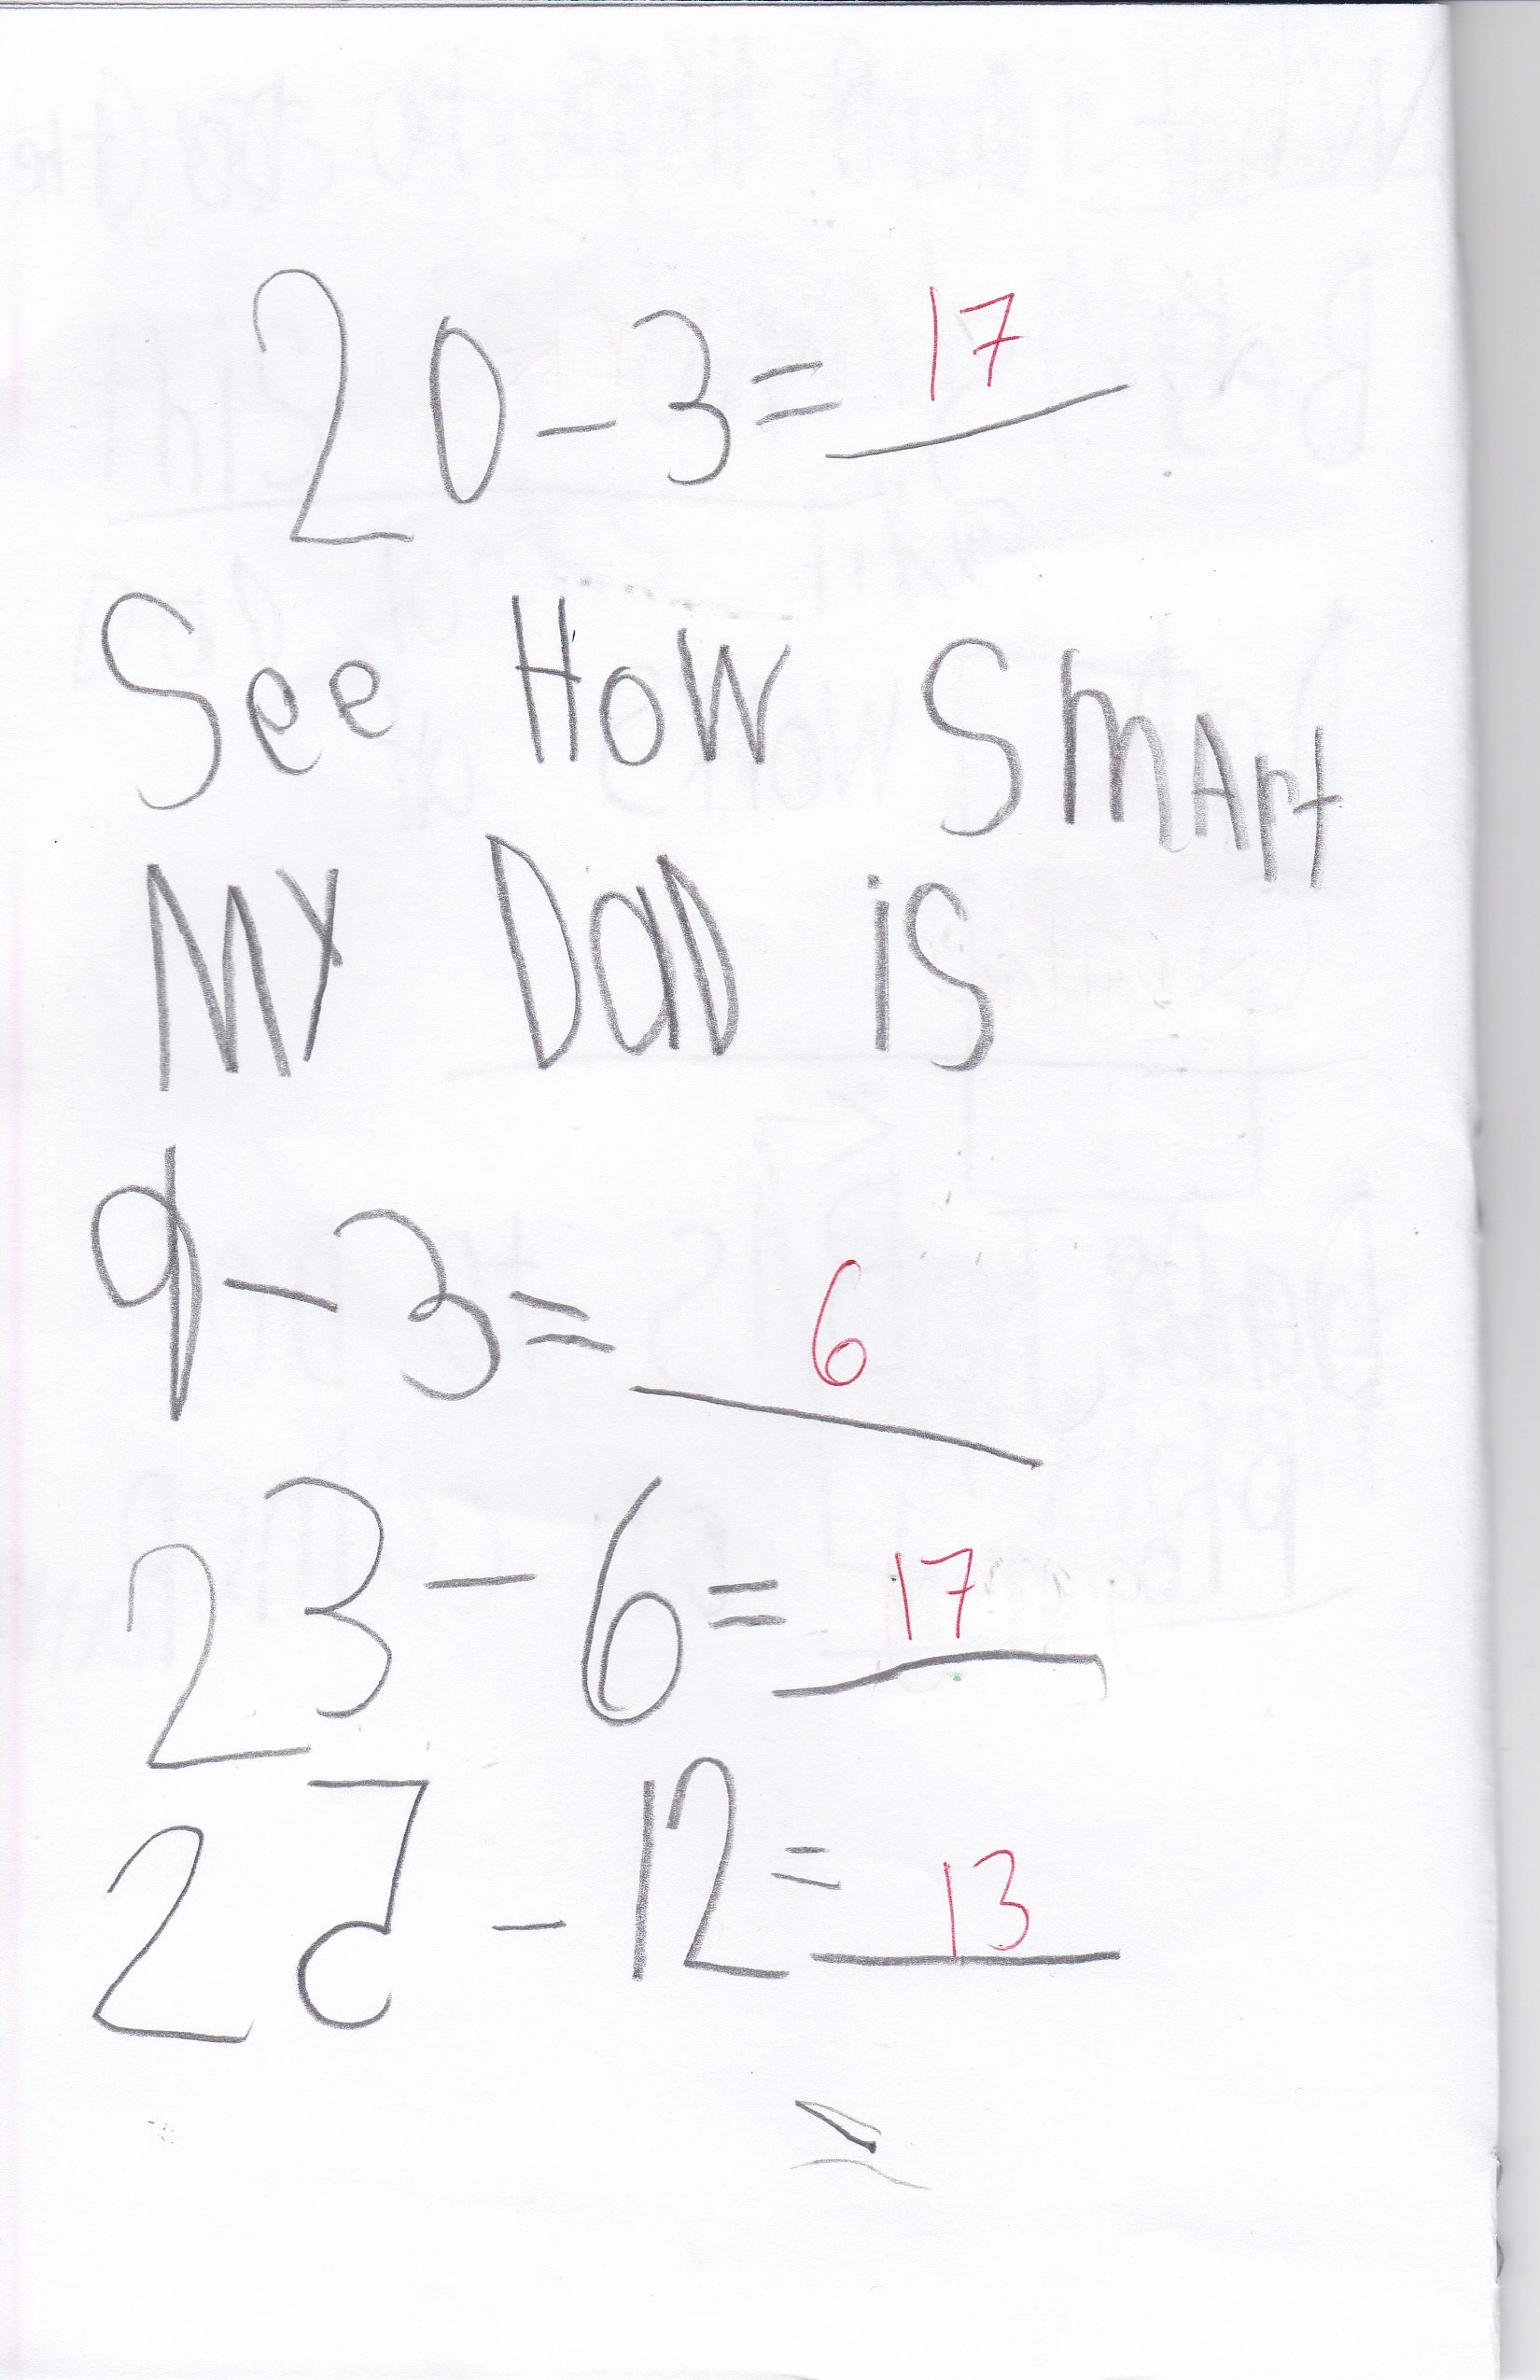 20-3=17
See How SmArt
MY DaD is
9-3=6
23-6=17
25-12=13
=